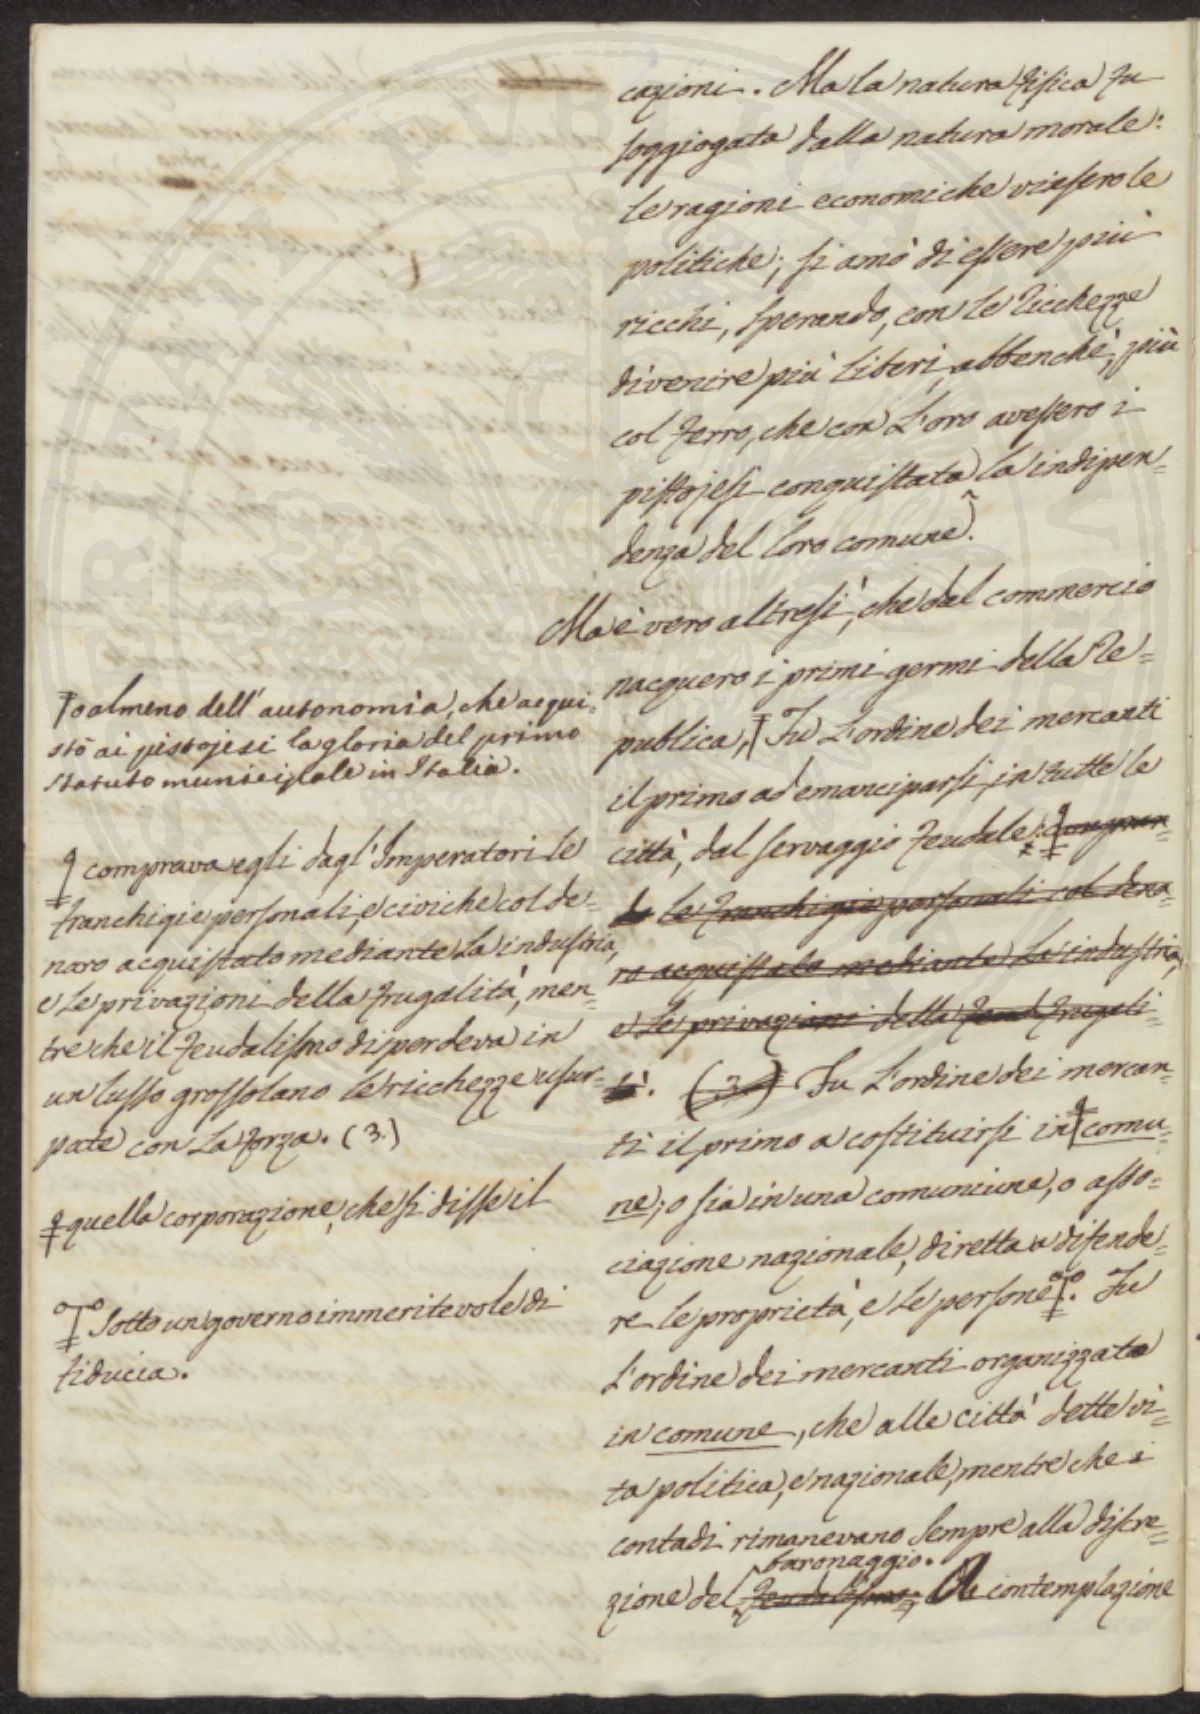 cazioni. Ma la natura fisica fu
soggiogata dalla natura morale:
le ragioni economiche vinsero le
politiche; si amò di essere più
ricchi, sperando, con le ricchezze
divenire più liberi, abbenchè, più
col ferro, che con l'oro avessero i
pistojesi conquistata la indipen=
denza del loro comune.
Ma è vero altresì, che dal commercio
nacquero i primi germi della Re=
publica, Fu l'ordine dei mercanti
il primo ad emanciparsi, in tutte le
città, dal servaggio feudale: compran=
do le franchigie personali col dena=
ro acquistato mediante la industria,
e le privazioni della feud frugali=
tà. (3.) Fu l'ordine dei mercan=
ti il primo a costituirsi in comu=
ne; o sia in una comunione, o asso=
ciazione nazionale, diretta a difende=
re le proprietà, e le persone. Fu
l'ordine dei mercanti organizzato
in comune, che alle città dette vi=
ta politica, e nazionale, mentre che i
contadi rimanevano sempre alla discre=
baronaggio.
zione del feudalismo; A contemplazione
o almeno dell'autonomia, che acqui=
stò ai pistojesi la gloria del primo
statuto municipale in Italia.
comprava egli dagl'Imperatori le
franchigie personali, e civiche col de=
naro acquistato mediante la industria,
e le privazioni della frugalità, men=
tre che il feudalismo disperdeva in
un lusso grossolano le ricchezze usur=
pate con la forza. (3.)
quella corporazione, che si disse il
Sotto un governo immeritevole di
fiducia.